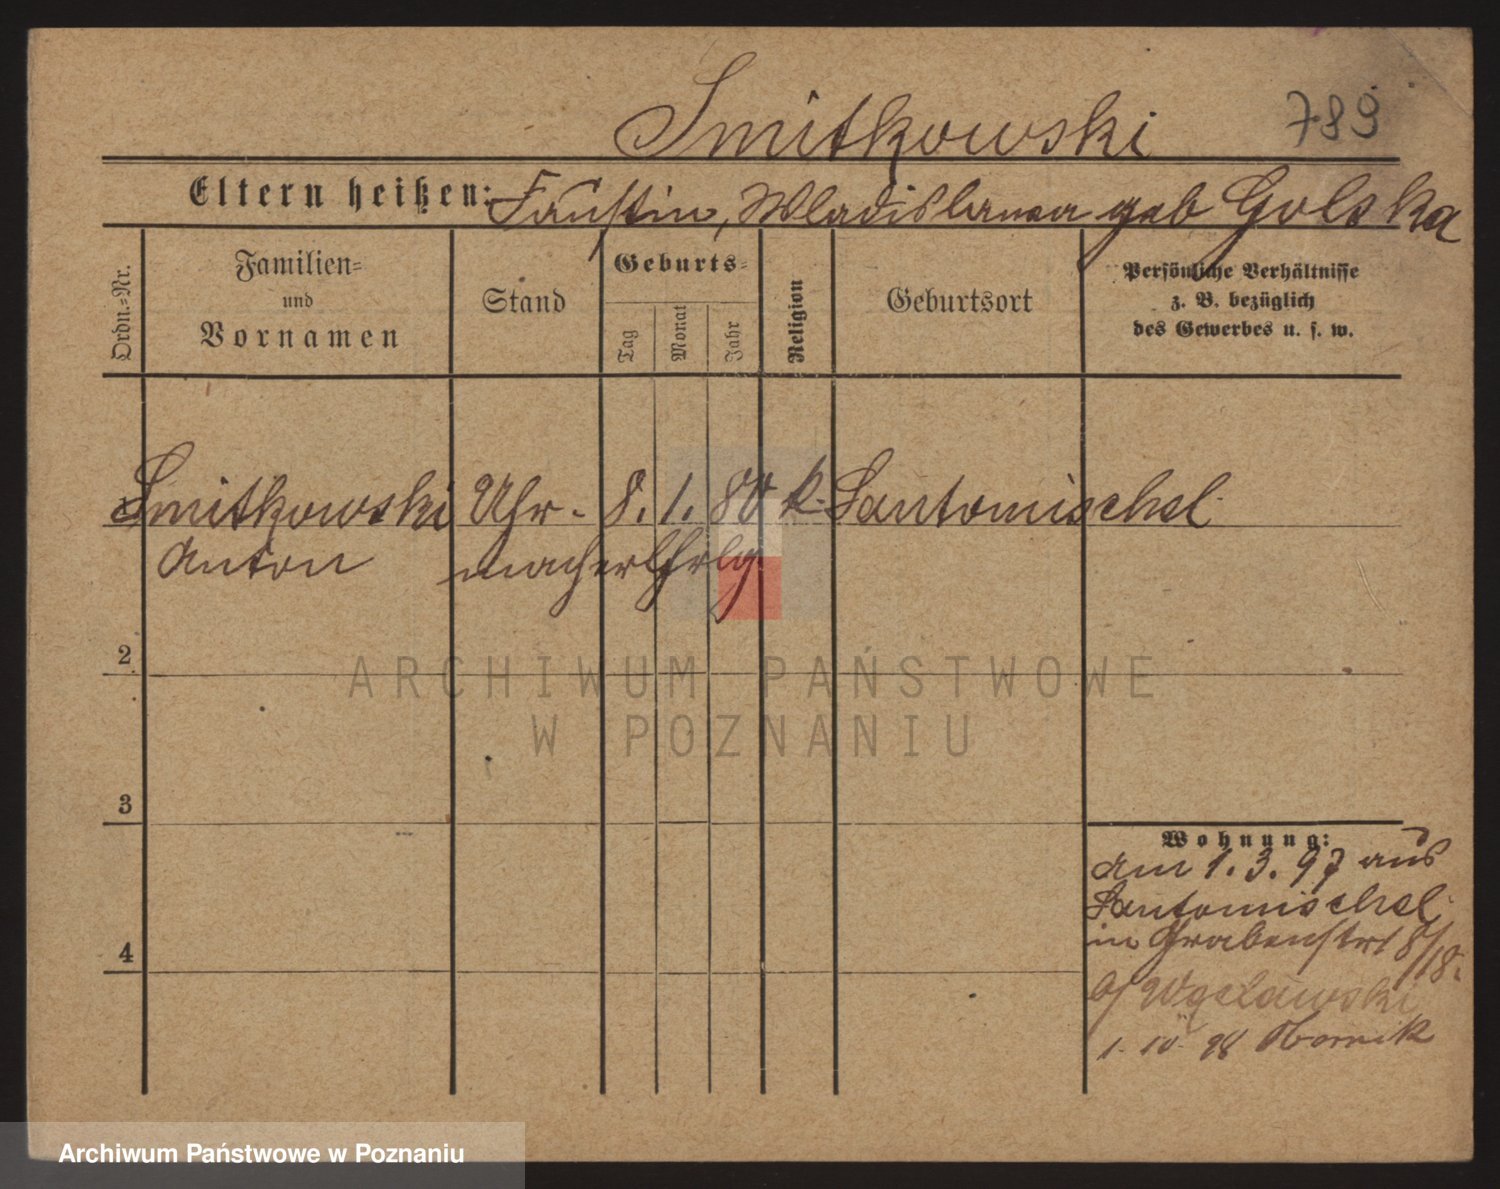 Smitkowski
789
Eltern heißen: Faustin, Wladislawa geb Golska
Ordn.=Nr.
Familien=
und
Vornamen
Stand
Geburts=
Tag
Monat
Jahr
Religion
Geburtsort
Persönliche Verhältnisse
z. B. bezüglich
des Gewerbes u. s. w.
1
Smitkowski Uhr- 8. 1. 80 k. Santomischel
Anton macherlehrlg
2
ARCHIWUM PAŃSTWOWE
W POZNANIU
3
Wohnung:
am 1. 3. 97 aus
Santomischel
in Grabenstr 8/18.
b/ Węclawski
4
1. 10. 98 Obornik
Archiwum Państwowe w Poznaniu